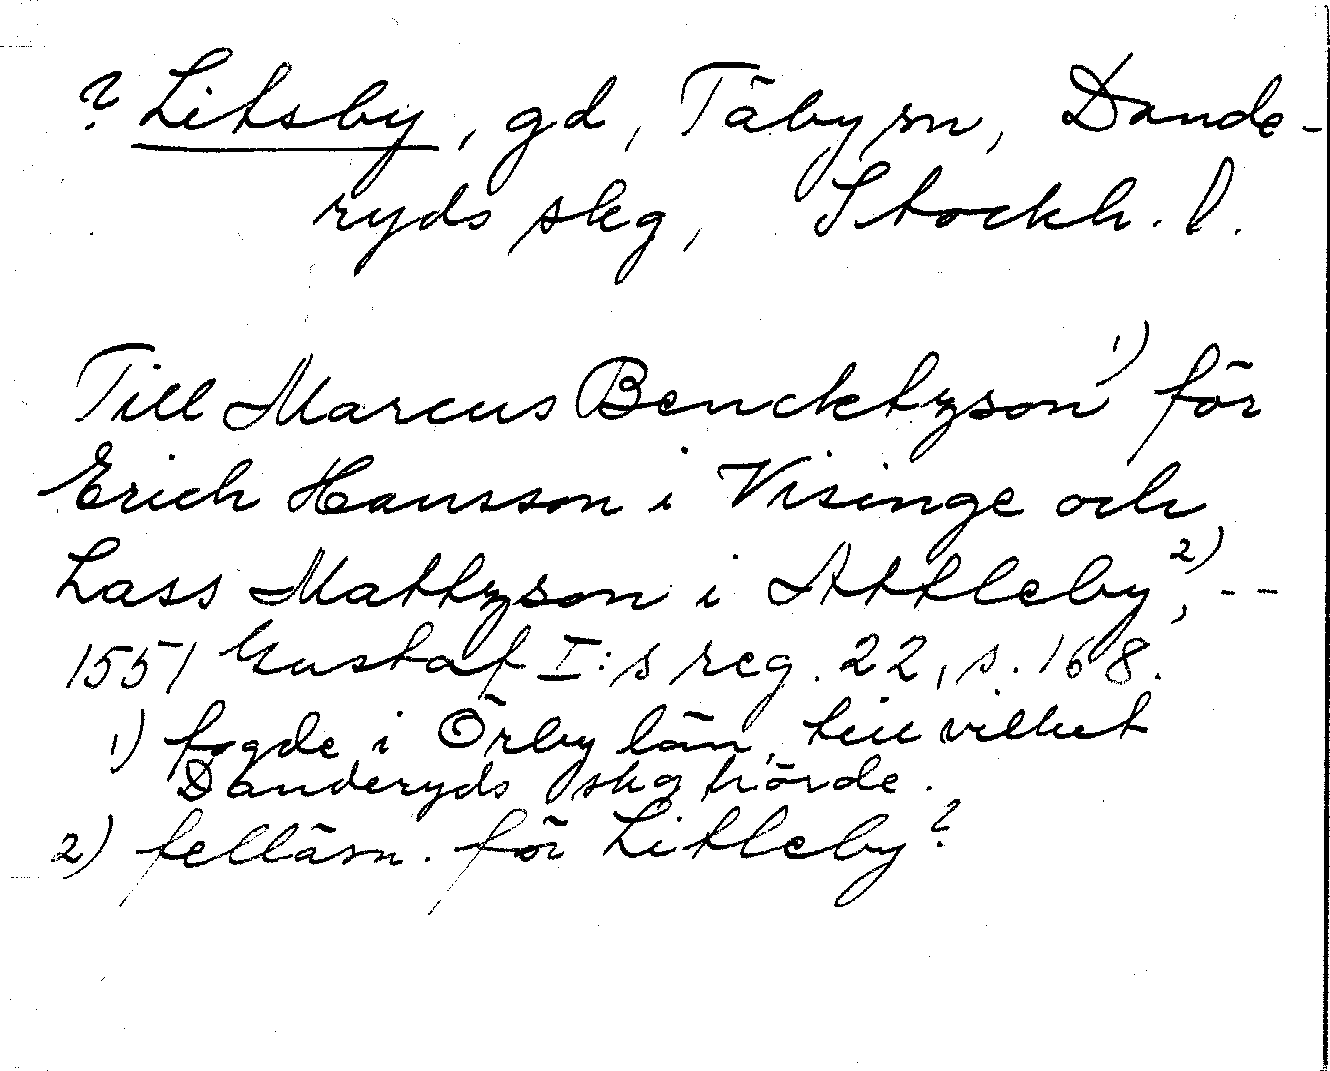 ? Litsby, gd, Täby sn, Dande-
ryds skg, Stockh. l.
Till Marcus Bencktzson 1) för
Erich Hansson i Visinge och
Lass Mattzson i Attleby 2), --
1551 Gustaf I:s reg. 22, s. 168.
1) fogde i Örby län, till vilket
Danderyds skg hörde.
2) felläsn. för Litleby?